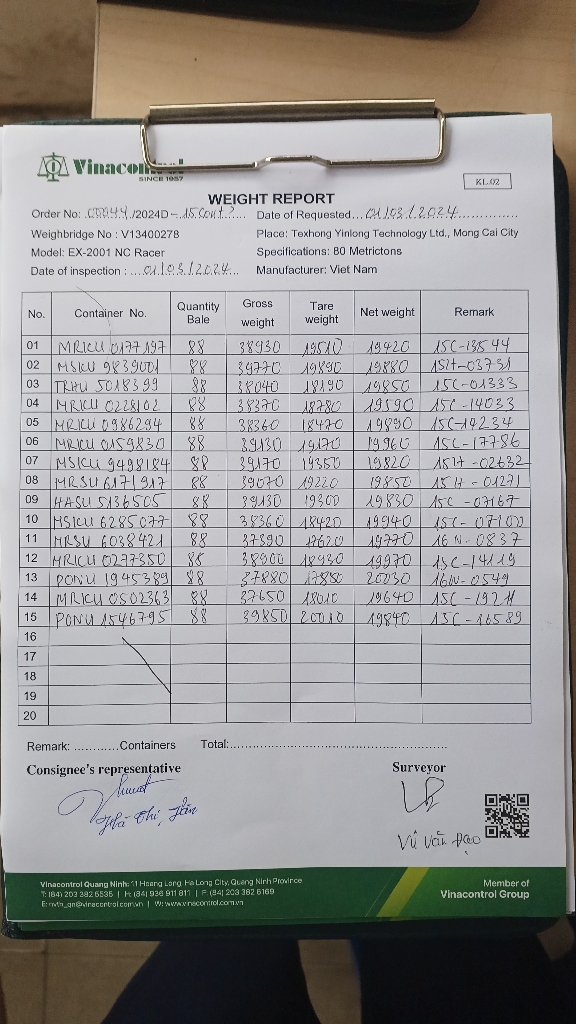 Vinacontrol
SINCE 1957
KL.02
WEIGHT REPORT
Order No: 00044/2024D-15 cont 2 Date of Requested...01/03/2024
Weighbridge No : V13400278 Place: Texhong Yinlong Technology Ltd., Mong Cai City
Model: EX-2001 NC Racer Specifications: 80 Metrictons
Date of inspection : 01/03/2024 Manufacturer: Viet Nam
No. Container No. Quantity Bale Gross weight Tare weight Net weight Remark
01 MRKU 0177197 88 38930 19510 19420 15C-13544
02 MSKU 9839001 88 39770 19890 19880 15H-03731
03 TRHU 5018399 88 38040 18190 19850 15C-01333
04 MRKU 0228102 88 38370 18780 19590 15C-14033
05 MRKU 0986294 88 38360 18470 19890 15C-14234
06 MRKU 0159830 88 39130 19170 19960 15C-17786
07 MSKU 9498184 88 39170 19350 19820 15H-02632
08 MRSU 6171917 88 39070 19220 19850 15H-01271
09 HASU 5136505 88 39130 19300 19830 15C-07167
10 MSKU 6285077 88 38360 18420 19940 15C-07100
11 MRSU 6038421 88 37390 17620 19770 16N-0837
12 MRKU 0277350 88 38900 18930 19970 15C-14119
13 PONU 1945389 88 37880 17850 20030 16N-0549
14 MRKU 0502363 88 37650 18010 19640 15C-19211
15 PONU 1546795 88 39850 20010 19840 15C-16589
16
17
18
19
20
Remark: ............Containers Total:......................................................
Consignee's representative Surveyor
Vũ Văn Đạo
Vinacontrol Quang Ninh: 11 Hoang Long, Ha Long City, Quang Ninh Province
T: (84) 203 382 5535 | H: (84) 936 911 811 | F: (84) 203 382 6169
E: nvth_qn@vinacontrol.com.vn | W: www.vinacontrol.com.vn
Member of
Vinacontrol Group